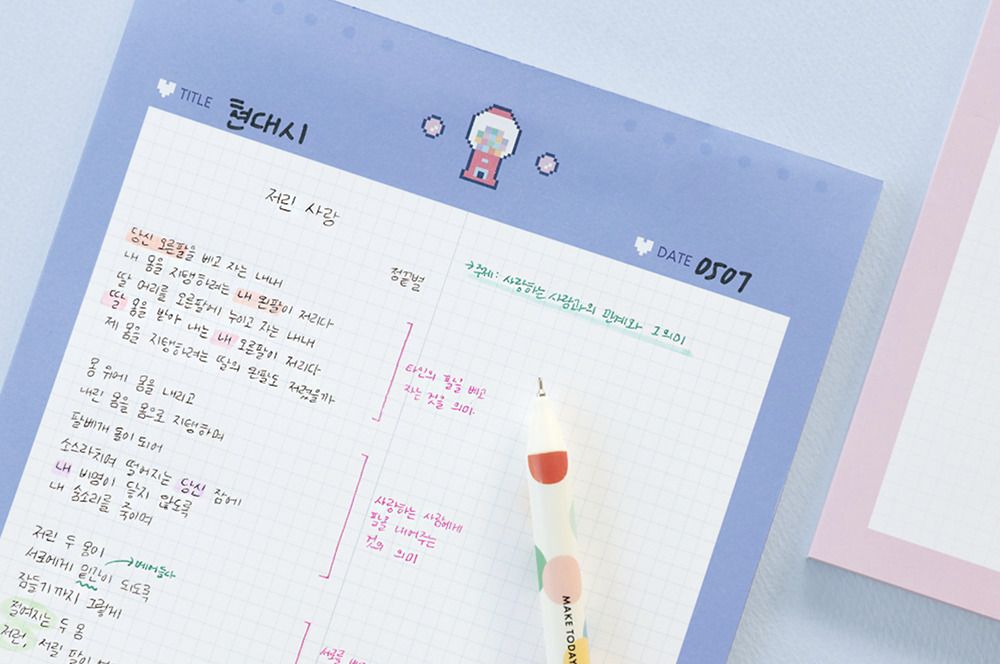 TITLE 현대시
DATE 0507
저린 사랑
정끝별
당신 오른팔을 베고 자는 내내
내 몸을 지탱하려는 내 왼팔이 저리다
딸 머리를 오른팔에 누이고 자는 내내
딸 몸을 받아 내는 내 오른팔이 저리다
제 몸을 지탱하려는 딸의 왼팔도 저렸을까
몸 위에 몸을 내리고
내린 몸을 몸으로 지탱하며
팔베개 돌이 되어
소스라치며 떨어지는 당신 잠에
내 비명이 닿지 않도록
내 숨소리를 죽이며
저린 두 몸이
서로에게 밑간이 되도록
→베어들다
잠들기까지 그렇게
절여지는 두 몸
저린, 서릴 팔이
→주제: 사랑하는 사람과의 관계와 그 의미
타인의 팔닐 베고
자는 것을 의미.
사랑하는 사람에게
팔닐 내어주는
것의 의미
서로를
MAKE TODAY